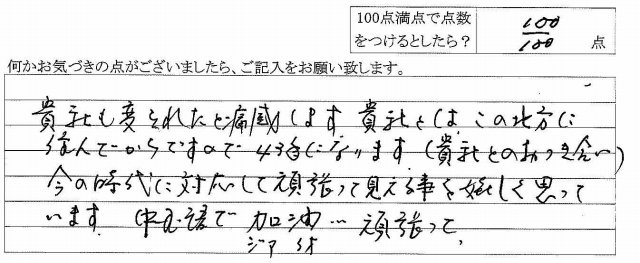 100点満点で点数
をつけるとしたら?
100/100 点
何かお気づきの点がございましたら、ご記入をお願い致します。
貴社も変られたと痛感します 貴社とは この地方に
住んでからですので 43年になります (貴社とのおつき合い)
今の時代に対応して頑張って見える事を嬉しく思って
います。 中国語で 加油… 頑張って、
ジアヨウ